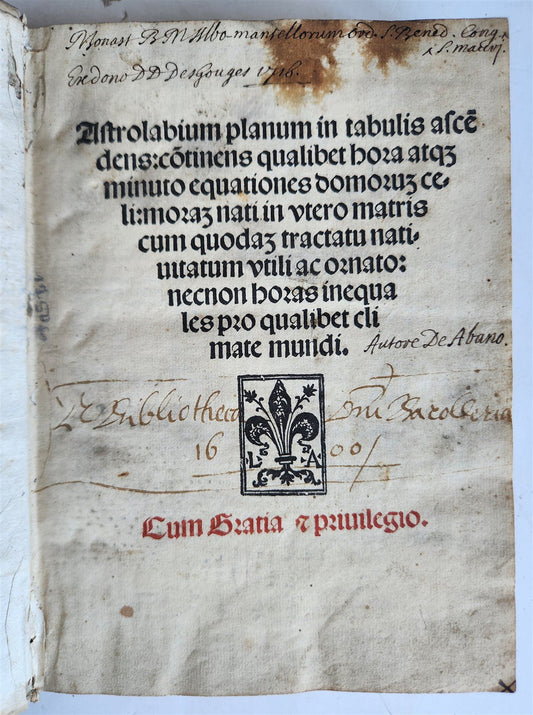 Monast B M Albo mantellorum ord. S. Bened. Cong.
S. Mauri
Ex dono DD Desgouges 1716.
Astrolabium planum in tabulis ascē
dens: cōtinens qualibet hora atqꝫ
minuto equationes domoruꝫ ce-
li: moraꝫ nati in vtero matris
cum quodaꝫ tractatu nati-
uitatum vtili ac ornato:
necnon horas inequa
les pro qualibet cli
mate mundi. Autore De Abano.
Ex Bibliotheca Dni
16 00
L A
Cum Gratia ⁊ priuilegio.